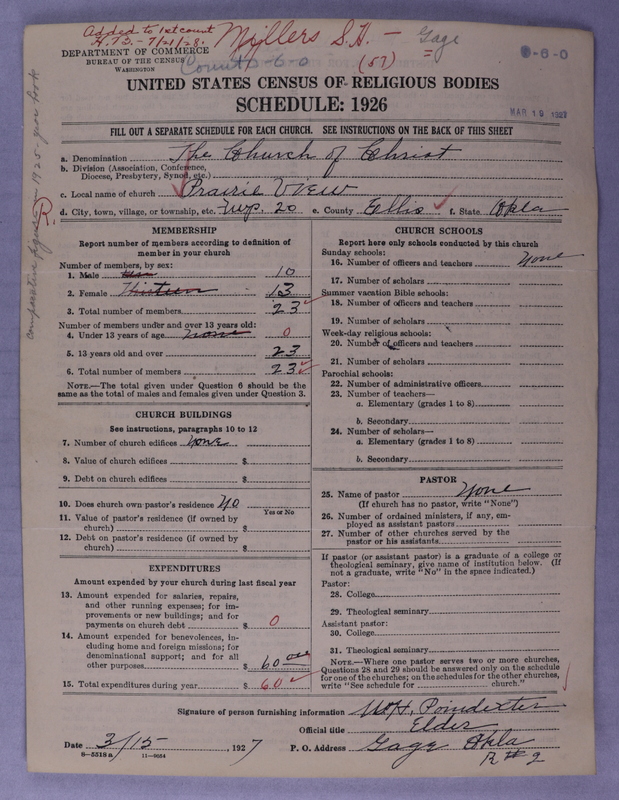 Added to 1st count
H.B. - 7/21/28.
Myllers S.H. - Gage
(52) =
DEPARTMENT OF COMMERCE
BUREAU OF THE CENSUS
WASHINGTON
Count 0-6-0
0-6-0
UNITED STATES CENSUS OF RELIGIOUS BODIES
SCHEDULE: 1926
MAR 19 1927
FILL OUT A SEPARATE SCHEDULE FOR EACH CHURCH. SEE INSTRUCTIONS ON THE BACK OF THIS SHEET
a. Denomination The Church of Christ
b. Division (Association, Conference, Diocese, Presbytery, Synod, etc.)
c. Local name of church Prairie View
d. City, town, village, or township, etc. Twp. 20 e. County Ellis f. State Okla
R.
1925 year book
MEMBERSHIP
Report number of members according to definition of
member in your church
Number of members, by sex:
1. Male 10
2. Female Thirteen 13
3. Total number of members 23
Number of members under and over 13 years old:
4. Under 13 years of age none 0
5. 13 years old and over 23
6. Total number of members 23
NOTE.—The total given under Question 6 should be the
same as the total of males and females given under Question 3.
CHURCH BUILDINGS
See instructions, paragraphs 10 to 12
7. Number of church edifices None
8. Value of church edifices $
9. Debt on church edifices $
10. Does church own pastor's residence No
Yes or No
11. Value of pastor's residence (if owned by
church) $
12. Debt on pastor's residence (if owned by
church) $
EXPENDITURES
Amount expended by your church during last fiscal year
13. Amount expended for salaries, repairs,
and other running expenses; for im-
provements or new buildings; and for
payments on church debt $ 0
14. Amount expended for benevolences, in-
cluding home and foreign missions; for
denominational support; and for all
other purposes $ 60
15. Total expenditures during year $ 60
CHURCH SCHOOLS
Report here only schools conducted by this church
Sunday schools:
16. Number of officers and teachers None
17. Number of scholars
Summer vacation Bible schools:
18. Number of officers and teachers
19. Number of scholars
Week-day religious schools:
20. Number of officers and teachers
21. Number of scholars
Parochial schools:
22. Number of administrative officers
23. Number of teachers—
a. Elementary (grades 1 to 8)
b. Secondary
24. Number of scholars—
a. Elementary (grades 1 to 8)
b. Secondary
PASTOR
25. Name of pastor None
(If church has no pastor, write "None")
26. Number of ordained ministers, if any, em-
ployed as assistant pastors
27. Number of other churches served by the
pastor or his assistants
If pastor (or assistant pastor) is a graduate of a college or
theological seminary, give name of institution below. (If
not a graduate, write "No" in the space indicated.)
Pastor:
28. College
29. Theological seminary
Assistant pastor:
30. College
31. Theological seminary
NOTE.—Where one pastor serves two or more churches,
Questions 28 and 29 should be answered only on the schedule
for one of the churches; on the schedules for the other churches,
write "See schedule for church."
Signature of person furnishing information W.H. Poindexter
Official title Elder
Date 3/15, 1927 P. O. Address Gage Okla
R#2
8—5518a 11—9054